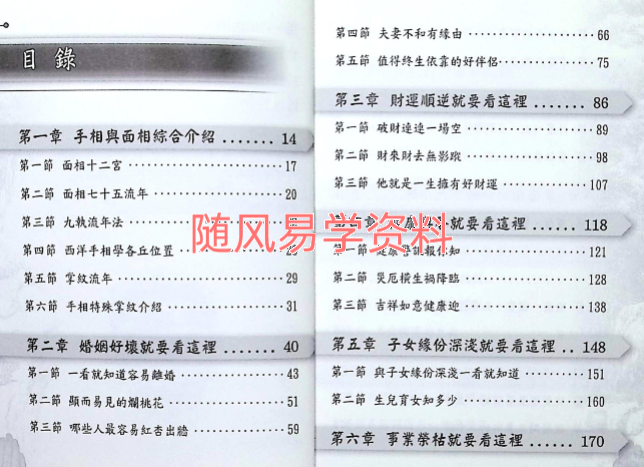 目錄
第一章 手相與面相綜合介紹 ....... 14
第一節 面相十二宮 ........................ 17
第二節 面相七十五流年 .................. 20
第三節 九執流年法
第四節 西洋手相學各丘位置
第五節 掌紋流年 ........................ 29
第六節 手相特殊掌紋介紹 .................. 31
第二章 婚姻好壞就要看這裡 ....... 40
第一節 一看就知道容易離婚 .................. 43
第二節 顯而易見的爛桃花 .................. 51
第三節 哪些人最容易紅杏出牆 .................. 59
第四節 夫妻不和有緣由 .................. 66
第五節 值得終生依靠的好伴侶 .................. 75
第三章 財運順逆就要看這裡 ....... 86
第一節 破財連連一場空 .................. 89
第二節 財來財去無影蹤 .................. 98
第三節 他就是一生擁有好財運 .................. 107
就要看這裡 ....... 118
第一節 .................. 121
第二節 災厄橫生禍降臨 .................. 128
第三節 吉祥如意健康迎 .................. 138
第五章 子女緣份深淺就要看這裡 .. 148
第一節 與子女緣份深淺一看就知道 ...... 151
第二節 生兒育女知多少 .................. 160
第六章 事業榮枯就要看這裡 ....... 170
随风易学资料